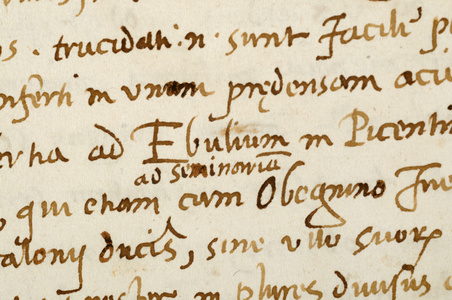 os . trucidati . n . sunt facile p
nferti in unam prędensam aci
ertia ad Ebulium in Picenti
ad Seminariā
, qui etiam cum Obegnino Fue
alonij ducis, sine ullo suorꝝ
in plures divisus